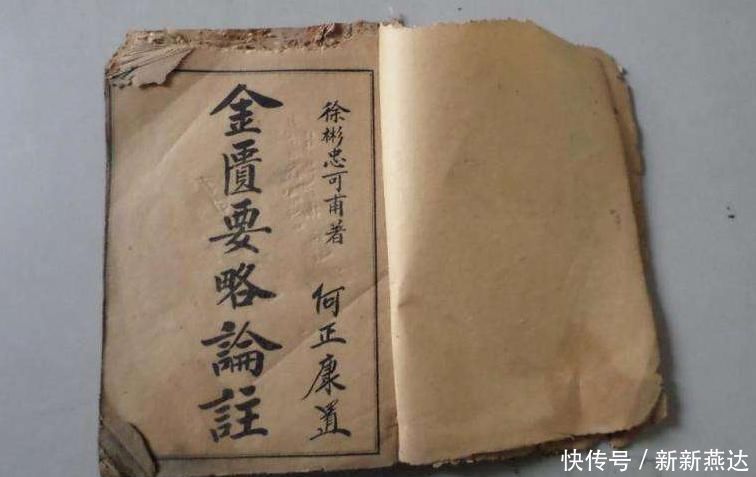 徐彬忠可甫著
何正康置
金匱要略論註
快传号/新新燕达